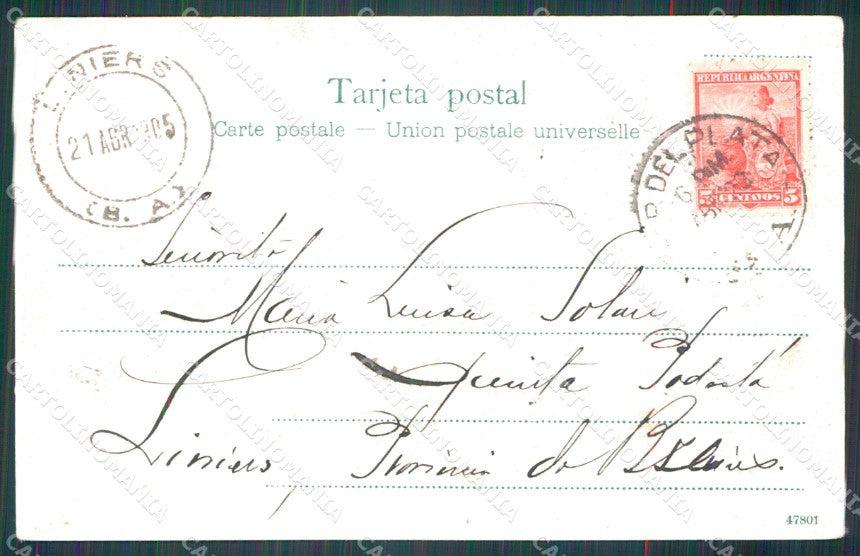 LINIERS
21 ABR 1905
(B. A)
Tarjeta postal
Carte postale — Union postale universelle
REPUBLICA ARGENTINA
5 CENTAVOS 5
DEL PLATA
Señorita
Maria Luisa Solari
Quinta Podestá
Liniers, Provincia de Bs Aires.
47801
CARTOLINOMANIA